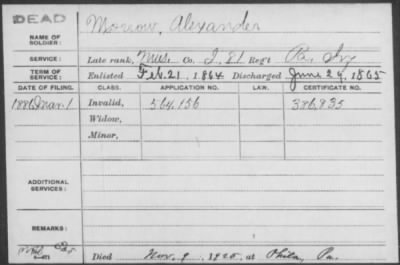 DEAD
NAME OF SOLDIER: Morrow, Alexander
SERVICE: Late rank, Mus. Co. I, 81 Regt Pa. Inf
TERM OF SERVICE: Enlisted Feb. 21, 1864 Discharged June 29, 1865
DATE OF FILING. CLASS. APPLICATION NO. LAW. CERTIFICATE NO.
1886 Mar 1 Invalid, 564.156 386,935
Widow,
Minor,
ADDITIONAL SERVICES:
REMARKS:
Died Nov. 9, 1925, at Phila, Pa.